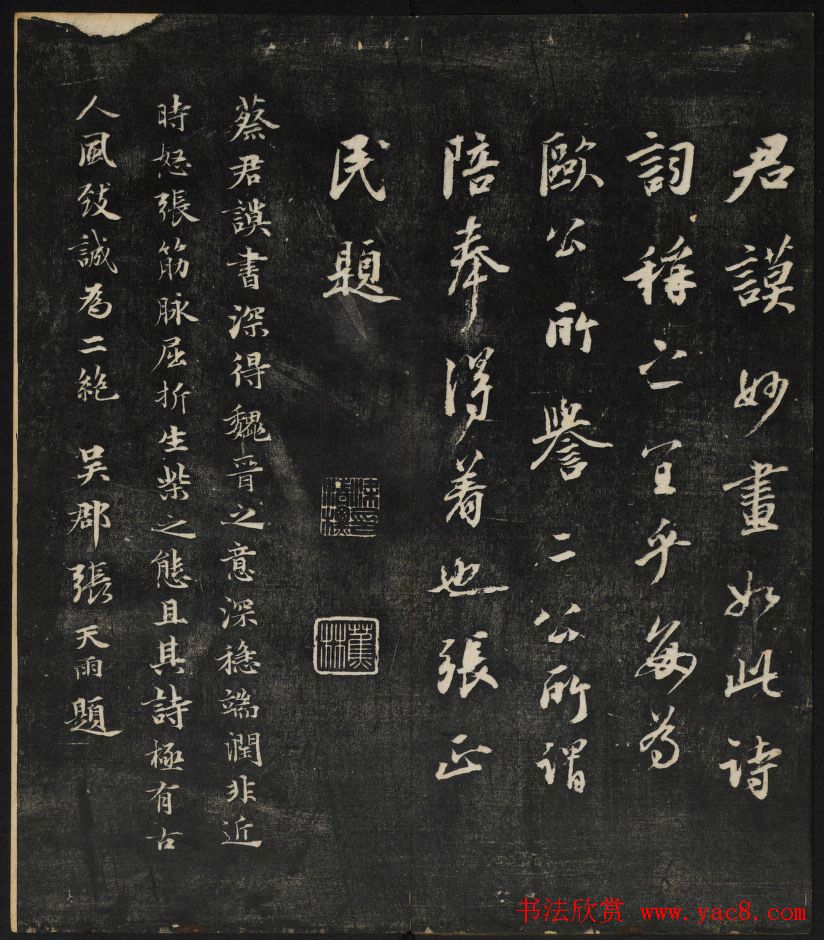 君謨妙畫如此詩
詞稱之宜乎每為
歐公所譽二公所謂
陪奉得着也張正
民題
蕉林
蔡君謨書深得魏晉之意深穩端潤非近
時怒張筋脉屈折生柴之態且其詩極有古
人風致誠為二絶 吴郡張天雨題
书法欣赏 www.yac8.com